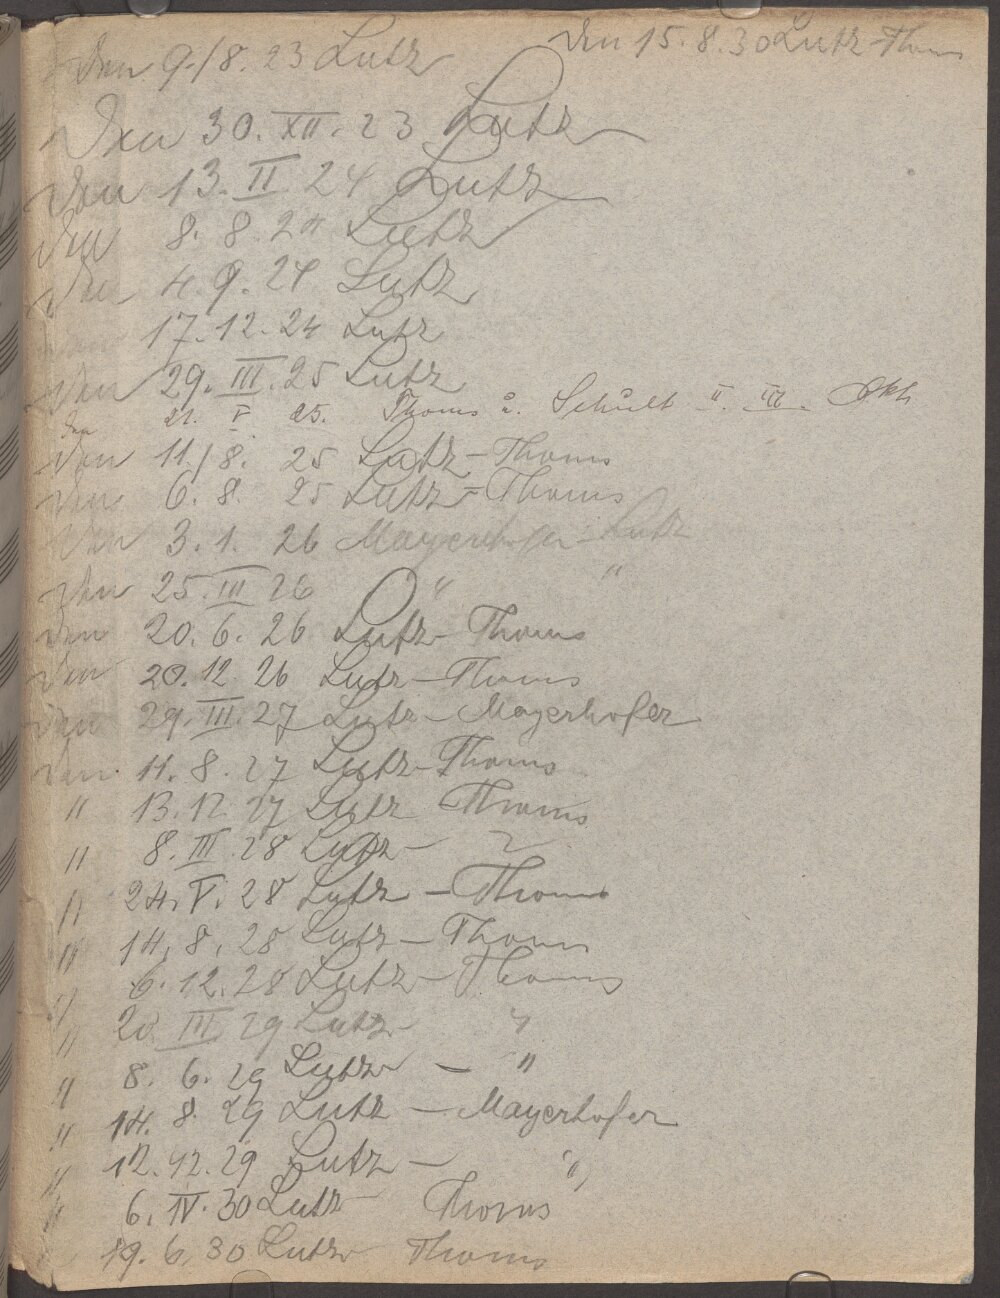 Den 9./8. 23 Lutz
Den 15. 8. 30 Lutz-Thoms
Den 30. XII. 23 Lutz
Den 13. II 24 Lutz
Den 8. 8. 24 Lutz
Den 4. 9. 24 Lutz
17. 12. 24 Lutz
Den 29. III. 25 Lutz
Den 21. V. 25. Thoms u. Schult II. III. Akt
Den 11./8. 25 Lutz-Thoms
Den 6. 8. 25 Lutz-Thoms
Den 3. 1. 26 Mayerhofer-Lutz
Den 25. III 26 " "
Den 20. 6. 26 Lutz-Thoms
Den 20. 12. 26 Lutz-Thoms
Den 29. III. 27 Lutz-Mayerhofer
Den 11. 8. 27 Lutz-Thoms
" 13. 12. 27 Lutz Thoms
" 8. III. 28 Lutz-
" 24. V. 28 Lutz-Thoms
" 14. 8. 28 Lutz-Thoms
" 6. 12. 28 Lutz-Thoms
" 20. III. 29 Lutz- "
" 8. 6. 29 Lutz - "
" 14. 8. 29 Lutz - Mayerhofer
" 12. 12. 29 Lutz - "
" 6. IV. 30 Lutz- Thoms
" 19. 6. 30 Lutz Thoms